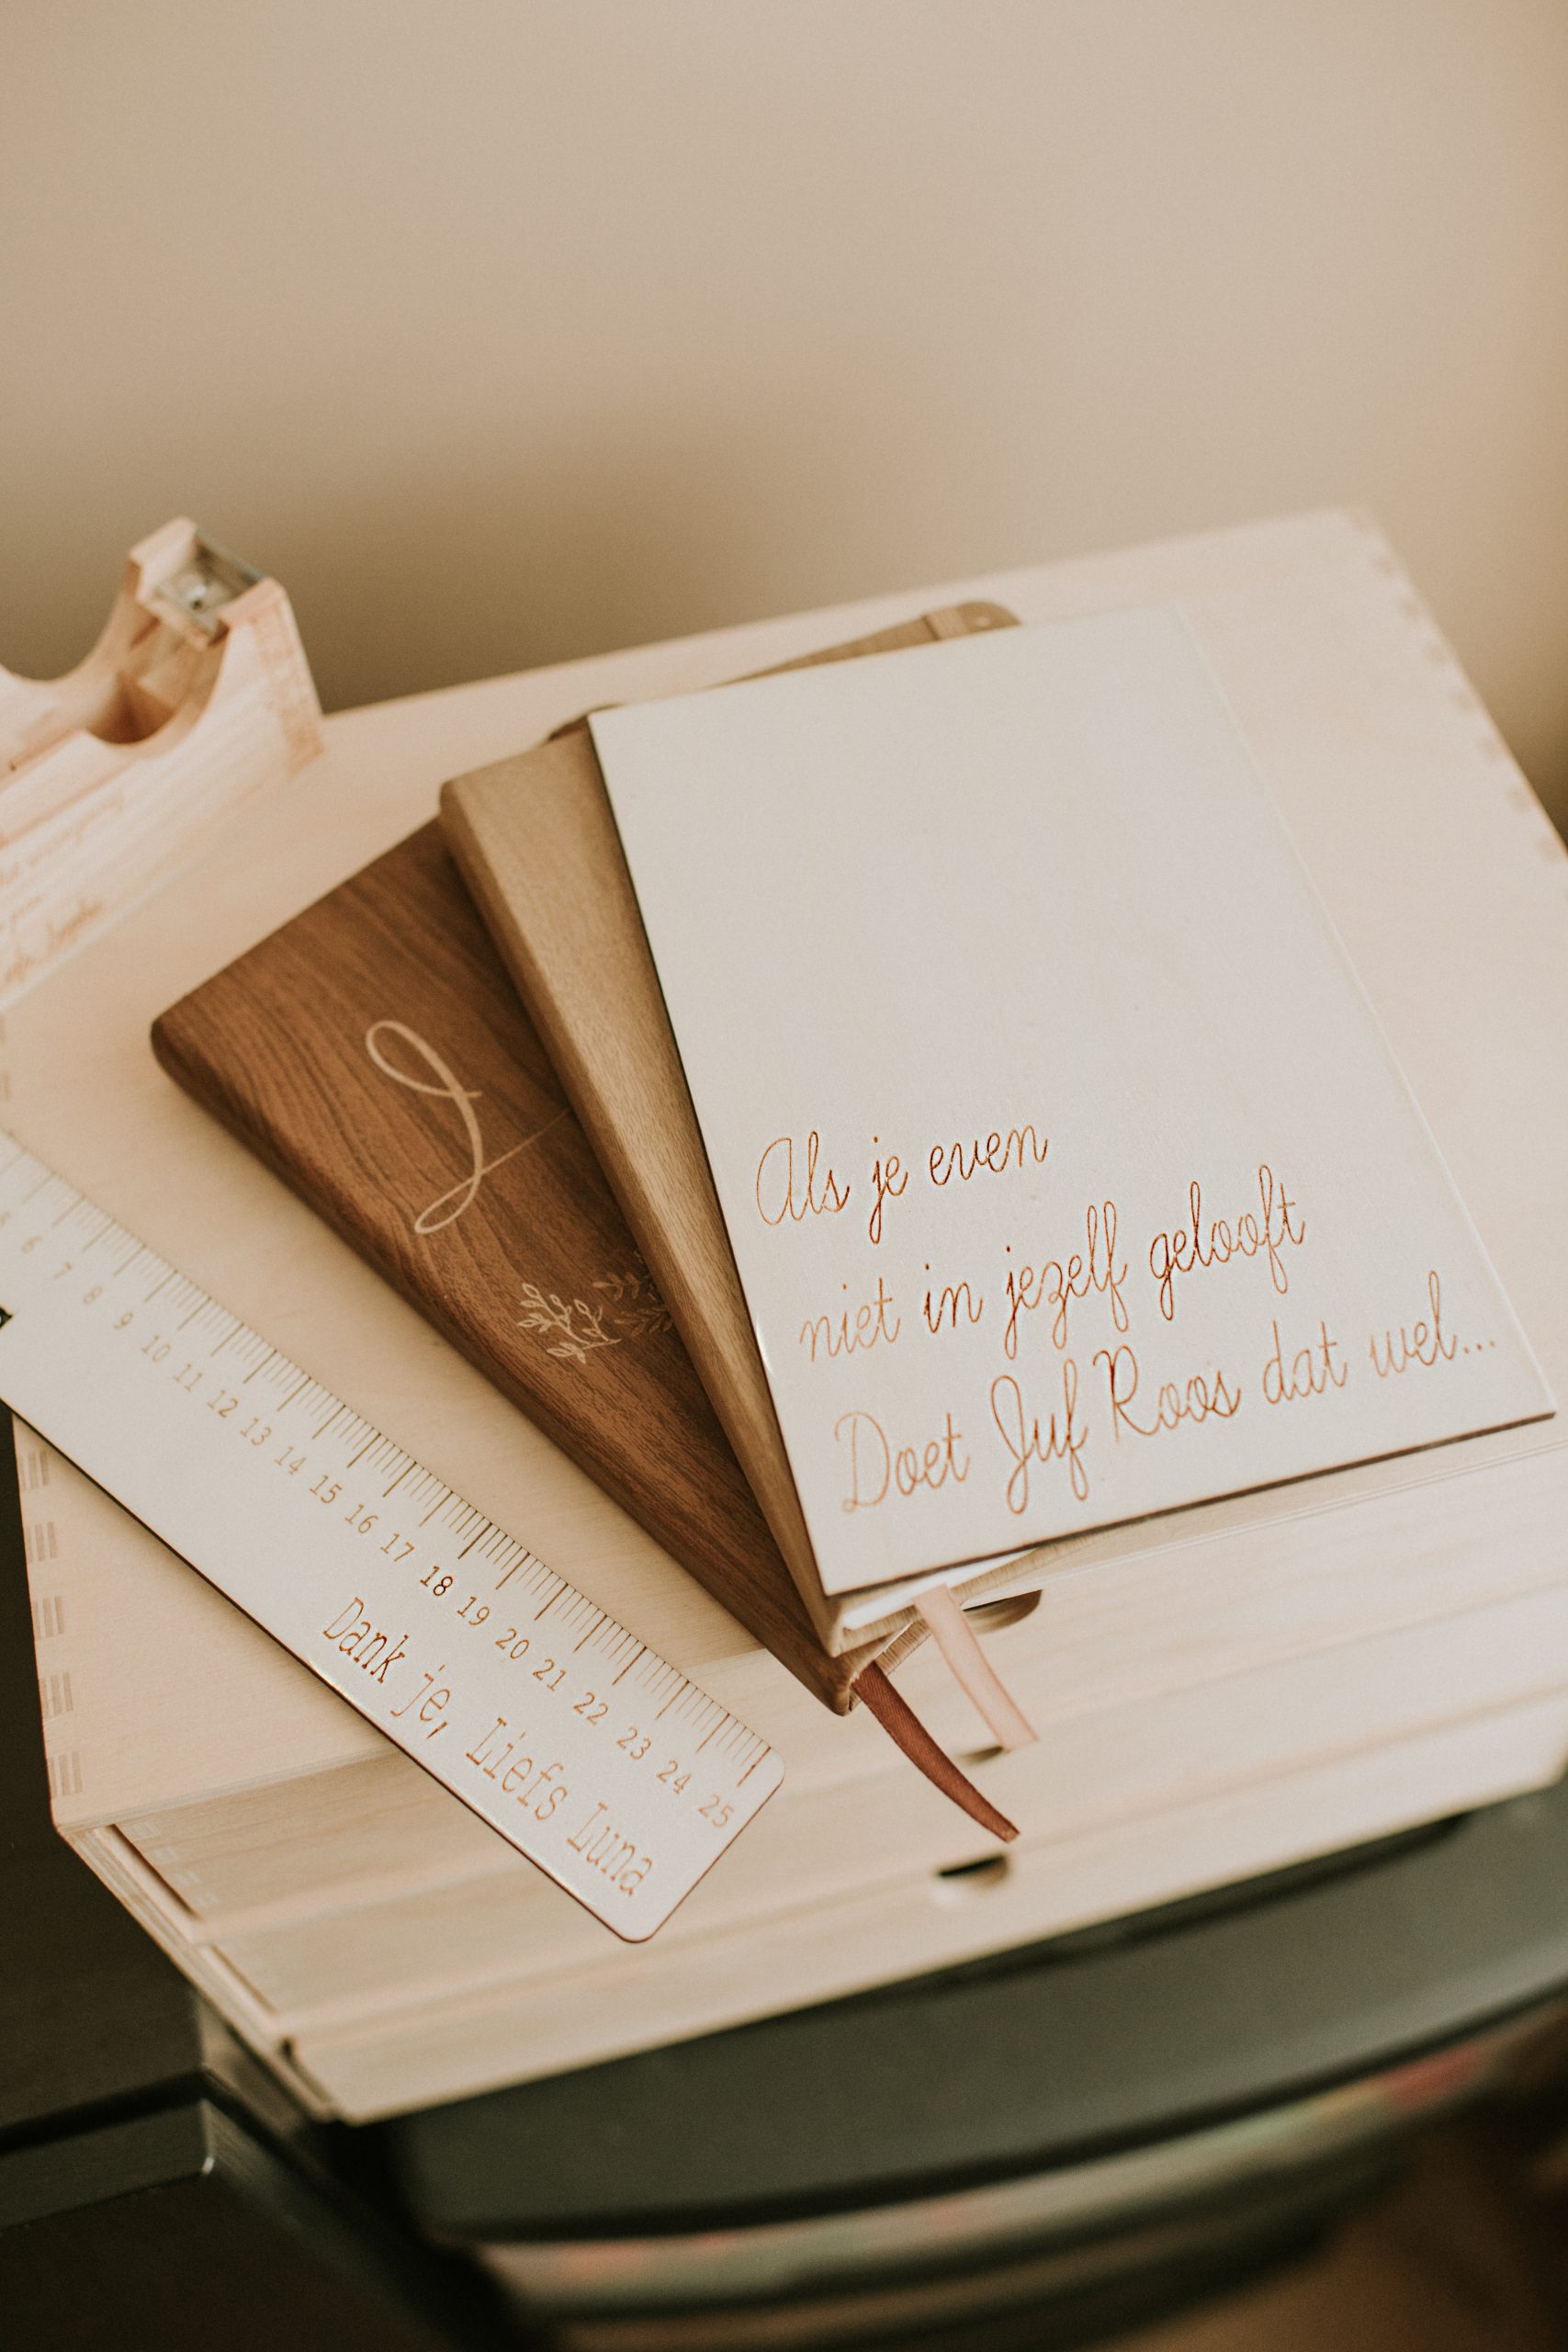 Als je even
niet in jezelf gelooft
Doet Juf Roos dat wel...
J
6 7 8 9 10 11 12 13 14 15 16 17 18 19 20 21 22 23 24 25
Dank je, Liefs Luna